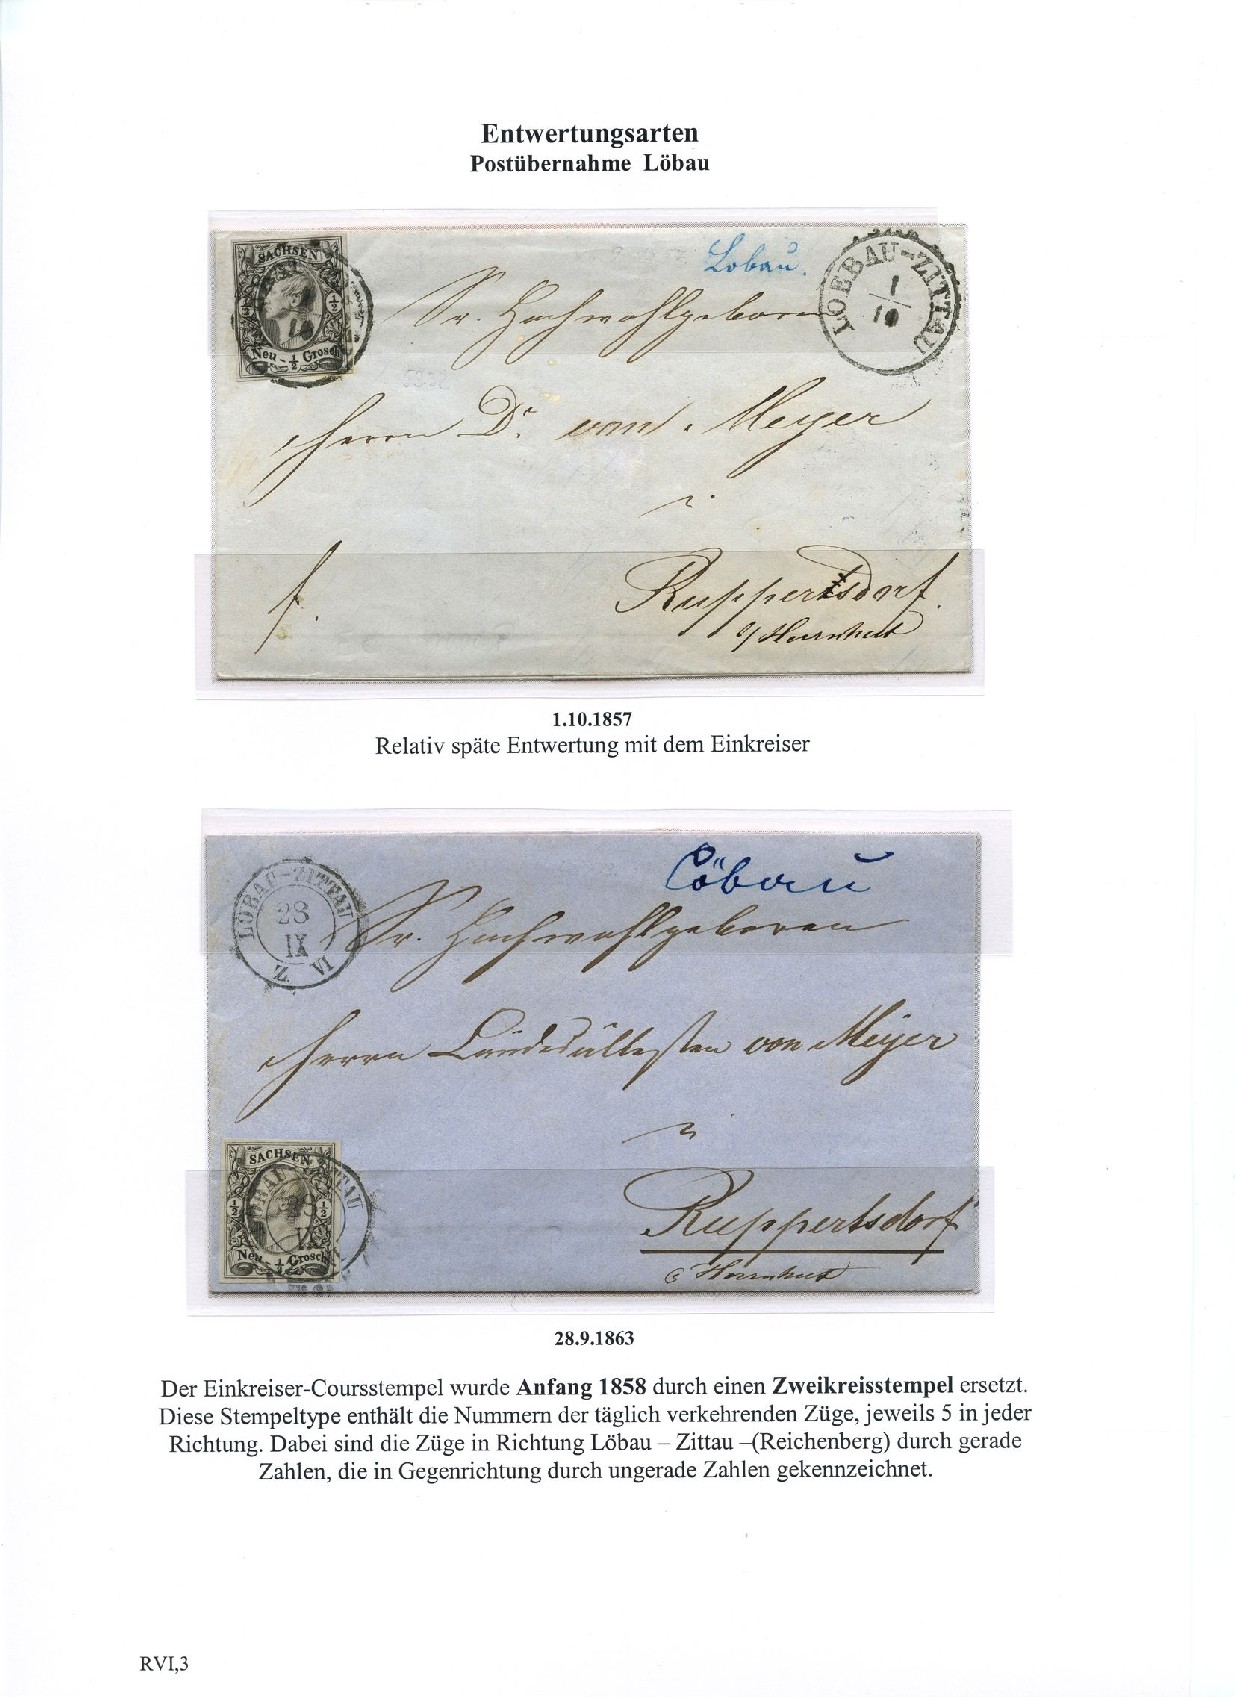 Entwertungsarten
Postübernahme Löbau
SACHSEN
½ ½
Neu - ½ Grosch.
Lobau.
LOEBAU-ZITTAU
1
10
Sr. Hochwohlgeboren
Herrn Dr. von Meyer
in
Ruppertsdorf.
b/ Herrnhut
f.
1.10.1857
Relativ späte Entwertung mit dem Einkreiser
LÖBAU-ZITTAU
28
IX
Z VI
Löbau
Sr. Hochwohlgeboren
Herrn Landesältesten von Meyer
in
Ruppertsdorf
b Herrnhut
SACHSEN
½ ½
Neu - ½ Grosch.
28.9.1863
Der Einkreiser-Coursstempel wurde Anfang 1858 durch einen Zweikreisstempel ersetzt.
Diese Stempeltype enthält die Nummern der täglich verkehrenden Züge, jeweils 5 in jeder
Richtung. Dabei sind die Züge in Richtung Löbau – Zittau –(Reichenberg) durch gerade
Zahlen, die in Gegenrichtung durch ungerade Zahlen gekennzeichnet.
RVI,3